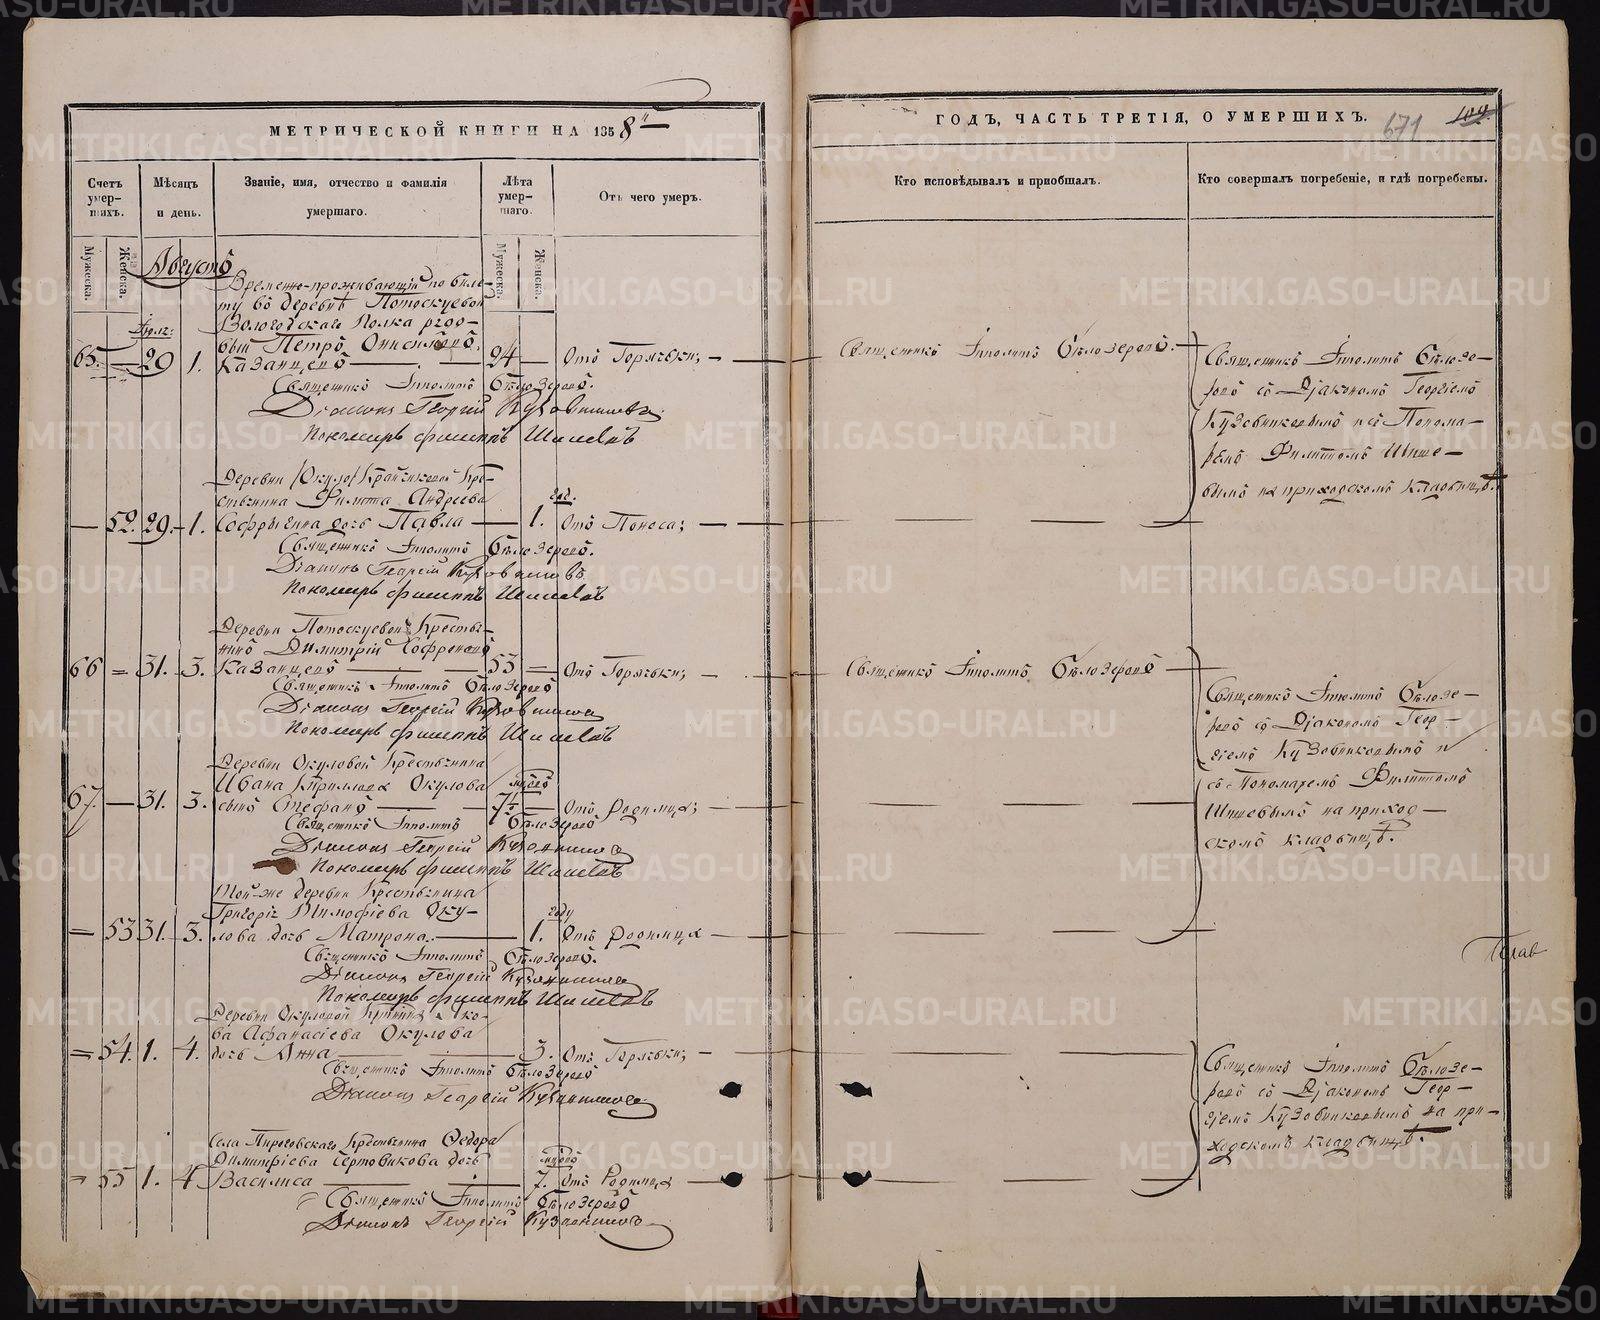 МЕТРИЧЕСКОЙ КНИГИ НА 1858й
ГОДЪ, ЧАСТЬ ТРЕТІЯ, О УМЕРШИХЪ.
671
Счетъ умер-шихъ.
Мѣсяцъ и день.
Званіе, имя, отчество и фамилія умершаго.
Лѣта умер-шаго.
Отъ чего умеръ.
Кто исповѣдывалъ и пріобщалъ.
Кто совершалъ погребеніе, и гдѣ погребены.
Мужеска.
Женска.
Мужеска.
Женска.
Августъ
Временно-проживающій по биле-
ту въ деревнѣ Потоскуевой
Вологодскаго Полка рядо-
вый Петръ Онисимовъ
65. — 29 1. Казанцевъ — 24 — Отъ Горячки;
Священникъ Ипполитъ Бѣлозеровъ.
Діаконъ Георгій Кузовниковъ
Пономарь Филиппъ Шишевъ
Священникъ Ипполитъ Бѣлозеровъ.
Священникъ Ипполитъ Бѣлозе-
ровъ съ Діакономъ Георгіемъ
Кузовниковымъ и съ Понома-
ремъ Филиппомъ Шише-
вымъ на приходскомъ кладбищѣ.
Деревни
стьянина Филиппа Андреева
год.
— 52. 29. 1. дочь Павла — 1. Отъ Поноса;
Священникъ Ипполитъ Бѣлозеровъ.
Діаконъ Георгій Кузовниковъ
Пономарь Филиппъ Шишевъ
Деревни Потоскуевой Крестья-
нинъ Димитрій Софроновъ
66 = 31. 3. Казанцевъ — 53 — Отъ Горячки;
Священникъ Ипполитъ Бѣлозеровъ
Діаконъ Георгій Кузовниковъ
Пономарь Филиппъ Шишевъ
Священникъ Ипполитъ Бѣлозеровъ
Священникъ Ипполитъ Бѣлозе-
ровъ съ Діакономъ Геор-
гіемъ Кузовниковымъ и
съ Пономаремъ Филиппомъ
Шишевымъ на приход-
скомъ кладбищѣ.
Деревни Окуловой Крестьянина
Ивана Кириллова Окулова
67. — 31. 3. сынъ Стефанъ — Отъ Родимца;
Священникъ Ипполитъ Бѣлозеровъ
Діаконъ Георгій Кузовниковъ
Пономарь Филиппъ Шишевъ
Той-же деревни Крестьянина
Григорія Тимофіева Оку-
году
= 53 31. 3. лова дочь Матрона. — 1. Отъ родимца
Священникъ Ипполитъ Бѣлозеровъ.
Діаконъ Георгій Кузовниковъ
Пономарь Филиппъ Шишевъ
Деревни Окуловой
ва Афанасіева Окулова
= 54. 1. 4. дочь Анна — 3. Отъ Горячки;
Священникъ Ипполитъ Бѣлозеровъ
Діаконъ Георгій Кузовниковъ
Священникъ Ипполитъ Бѣлозе-
ровъ съ Діакономъ Геор-
гіемъ Кузовниковымъ на при-
ходскомъ кладбищѣ.
Села Пироговскаго Крестьянина Ѳедора
Димитріева Чертовикова дочь
= 55 1. 4 Василиса — 7. Отъ Родимца
Священникъ Ипполитъ Бѣлозеровъ
Діаконъ Георгій Кузовниковъ
METRIKI.GASO-URAL.RU